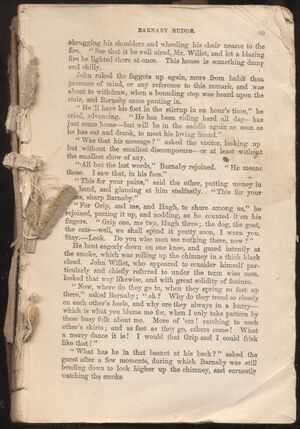 BARNABY RUDGE. 89
shrugging his shoulders and wheeling his chair nearer to the
fire. "See that it be well aired, Mr. Willet, and let a blazing
fire be lighted there at once. This house is something damp
and chilly.
John raked the faggots up again, more from habit than
presence of mind, or any reference to this remark, and was
about to withdraw, when a bounding step was heard upon the
stair, and Barnaby came panting in.
"He'll have his foot in the stirrup in an hour's time," he
cried, advancing. "He has been riding hard all day—has
just come home—but will be in the saddle again as soon as
he has eat and drank, to meet his loving friend."
"Was that his message?" asked the visitor, looking up
but without the smallest discomposure—or at least without
the smallest show of any.
"All but the last words," Barnaby rejoined. "He means
those. I saw that, in his face."
"This for your pains," said the other, putting money in
hand, and glancing at him stedfastly. "This for your
sharp Barnaby."
"For Grip, and me, and Hugh, to share among us," he
rejoined, putting it up, and nodding, as he counted it on his
fingers. "Grip one, me two, Hugh three; the dog, the goat,
the cats—well, we shall spend it pretty soon, I warn you.
Stay.—Look. Do you wise men see nothing there, now?"
He bent eagerly down on one knee, and gazed intently at
the smoke, which was rolling up the chimney in a thick black
cloud. John Willet, who appeared to consider himself par-
ticularly and chiefly referred to under the term wise men,
looked that way likewise, and with great solidity of feature.
"Now, where do they go to, when they spring so fast up
there," asked Barnaby; "eh? Why do they tread so closely
on each other's heels, and why are they always in a hurry—
which is what you blame me for, when I only take pattern by
these busy folk about me. More of 'em! catching to each
other's skirts; and as fast as they go, others come! What
a merry dance it is! I would that Grip and I could frisk
like that!"
"What has he in that basket at his back?" asked the
guest after a few moments, during which Barnaby was still
bending down to look higher up the chimney, and earnestly
watching the smoke